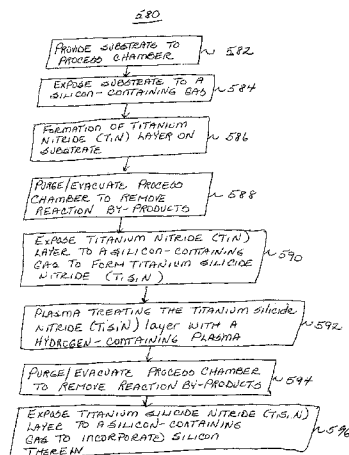 580
PROVIDE SUBSTRATE TO
PROCESS CHAMBER
582
EXPOSE SUBSTRATE TO A
SILICON-CONTAINING GAS
584
FORMATION OF TITANIUM
NITRIDE (TiN) LAYER ON
SUBSTRATE
586
PURGE/EVACUATE PROCESS
CHAMBER TO REMOVE
REACTION BY-PRODUCTS
588
EXPOSE TITANIUM NITRIDE (TiN)
LAYER TO A SILICON-CONTAINING
GAS TO FORM TITANIUM SILICIDE
NITRIDE (TiSiN)
590
PLASMA TREATING THE TITANIUM silicide
NITRIDE (TiSiN) layer WITH A
HYDROGEN-CONTAINING PLASMA
592
PURGE/EVACUATE PROCESS CHAMBER
TO REMOVE REACTION BY-PRODUCTS
594
EXPOSE TITANIUM SILICIDE NITRIDE (TiSiN)
LAYER TO A SILICON-CONTAINING
GAS TO INCORPORATE SILICON
THEREIN
596